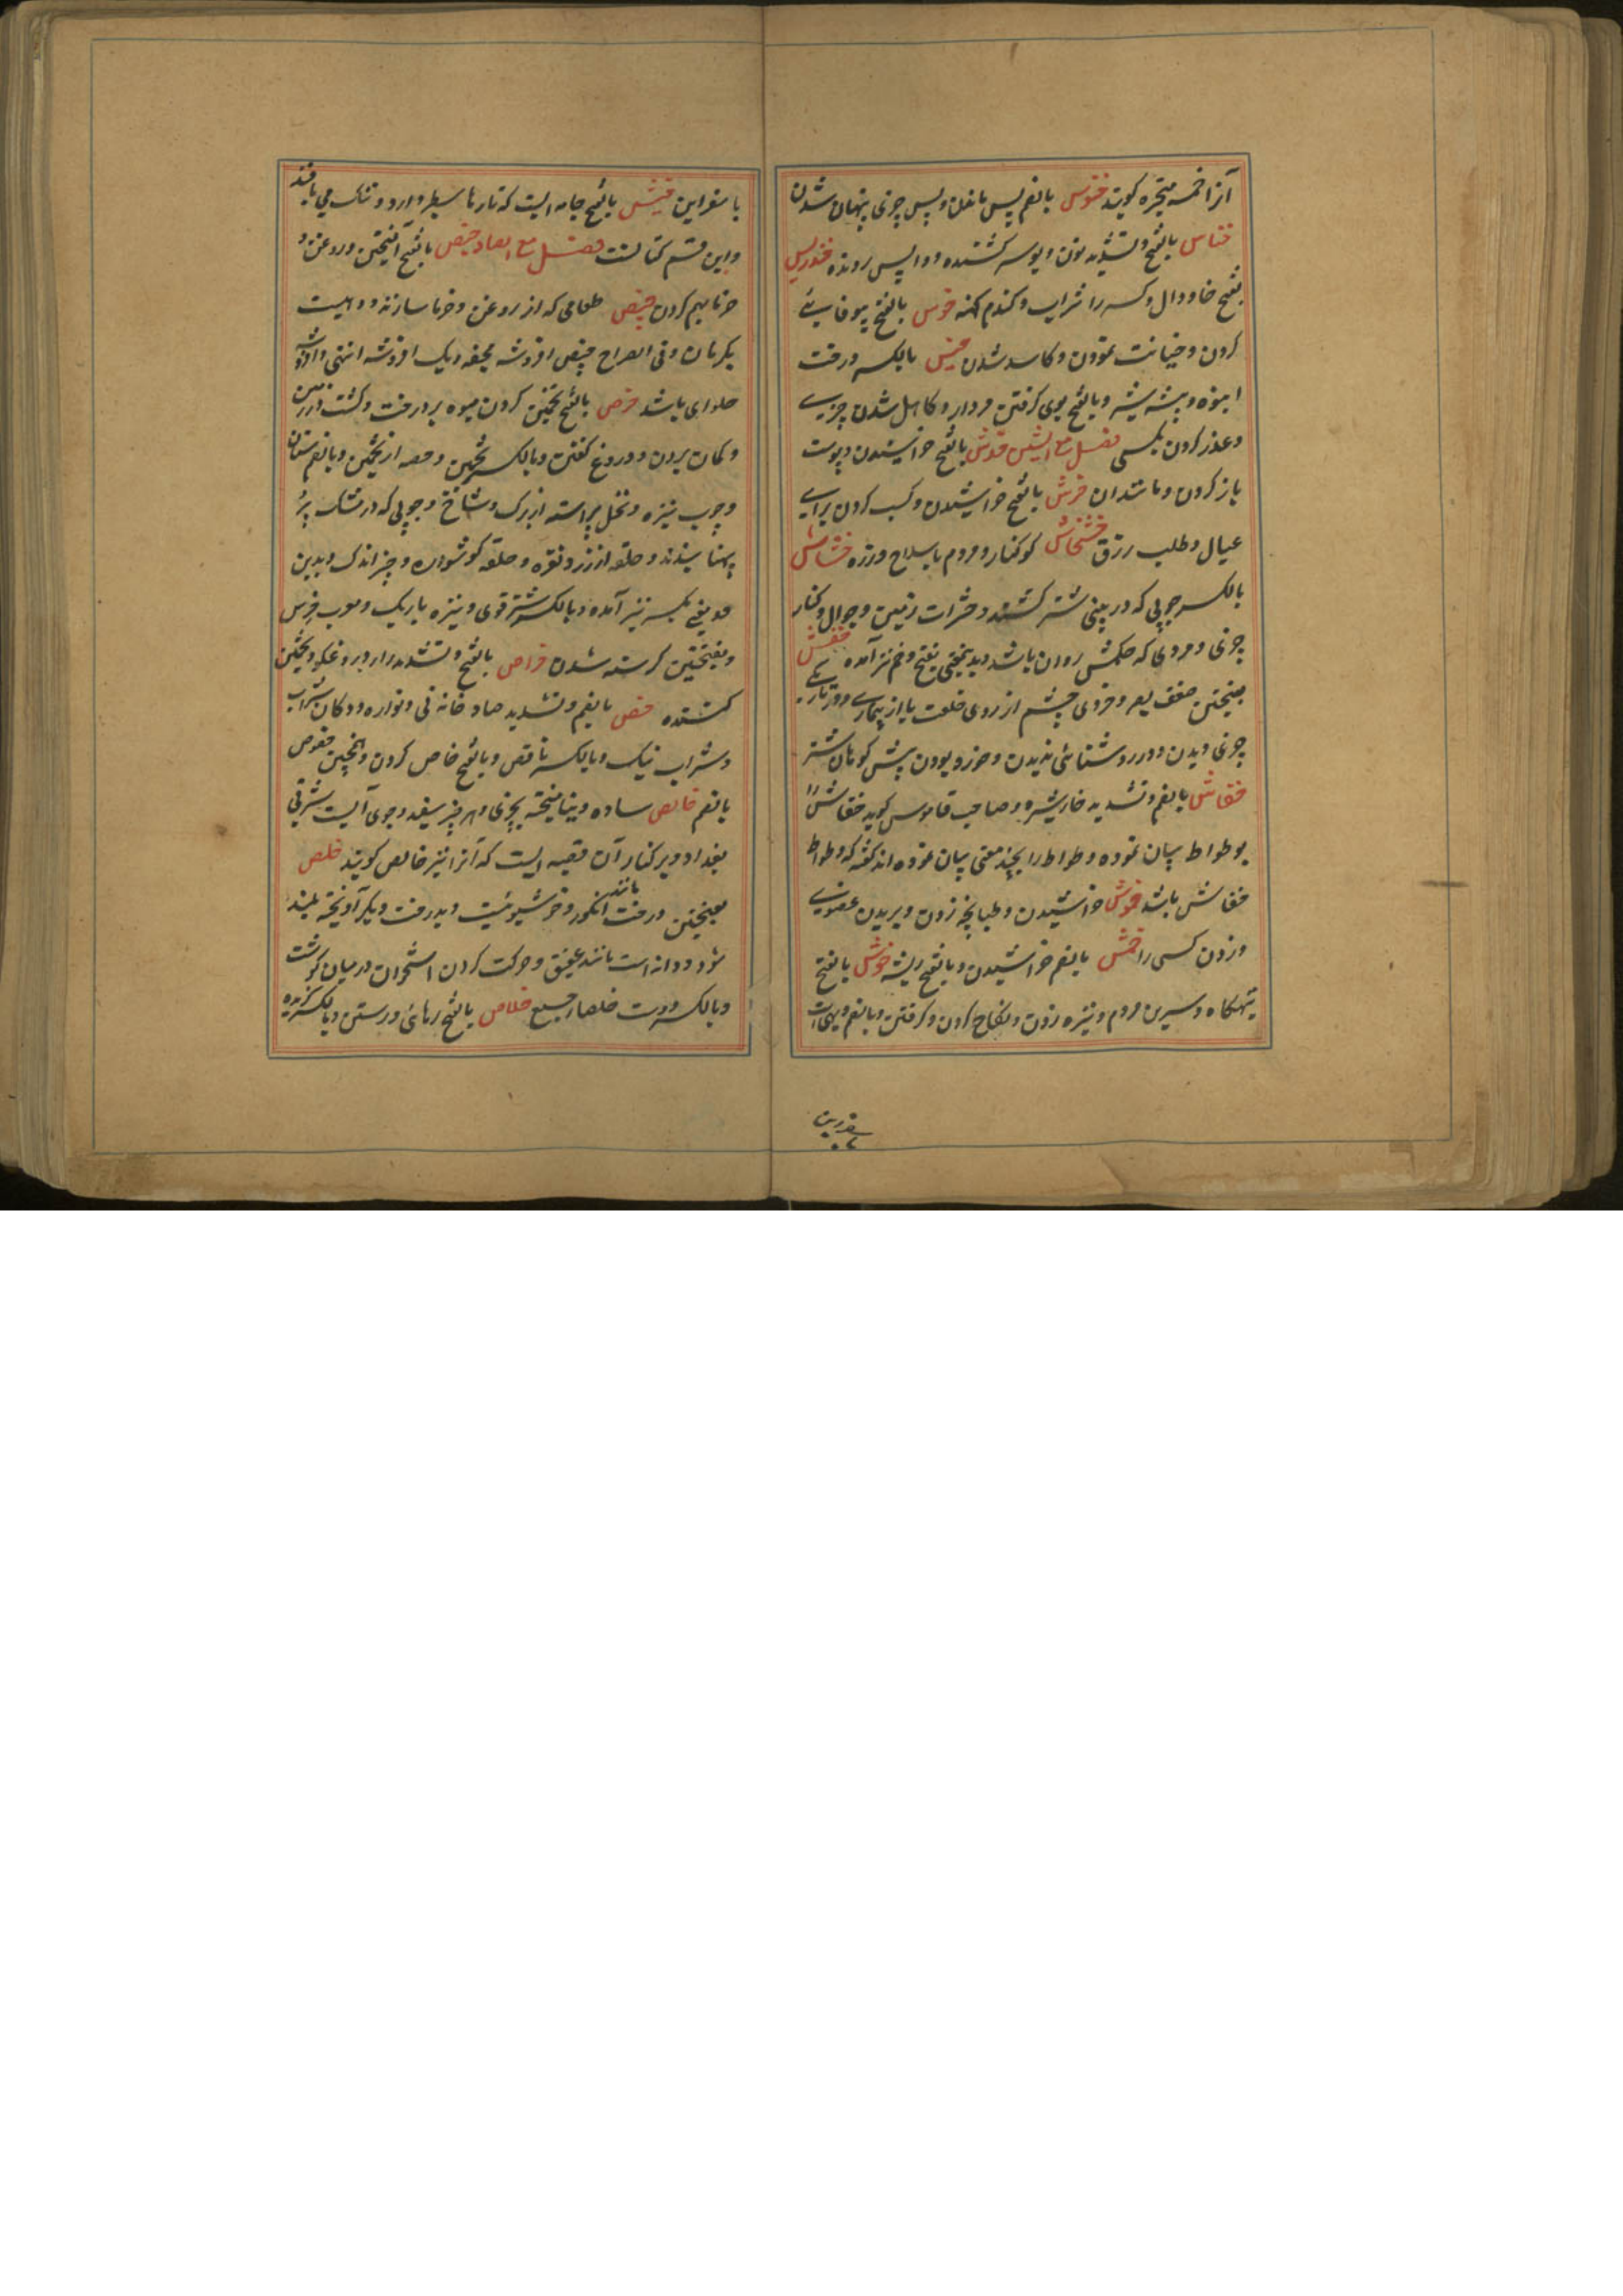 آنرا خمسه متحیره کویند خنوس بالضم پس ماندن و پس چیزی پنهان شدن
خناس بالفتح و تشدید نون دیو وسوسه کننده و واپس رونده خندریس
بفتح خا و دال و کسر را شراب و کندم کهنه خوس بالفتح بیوفایی
کردن و خیانت نمودن و کاسد شدن خیس بالکسر درخت
انبوه و بیشه شیر و بالفتح بوی کرفتن مردار و کاهل شدن چیزی
و عذر کردن بکسی فصل مع الشین خدش بالفتح خراشیدن و پوست
باز کردن و مانند آن خرش بالفتح خراشیدن و کسب کردن برای
عیال و طلب رزق خشخاش کوکنار و مردم با سلاح و زره خشاش
بالکسر چوبی که در بینی شتر کشند و حشرات زمین و جوال و کنار
چیزی و مردی که حکمش روان باشد و بدینمعنی بفتح و ضم نیز آمده خفش
بفتحتین ضعف بصر و خردی چشم از روی خلقت یا از بیماری و در تاریکی
چیزی دیدن و در روشنائی ندیدن و خرد بودن پیش کوهان شتر
خفاش بالضم و تشدید فا شپره و صاحب قاموس کوید خفاش را
بوطواط بیان نموده و طواط را بچند معنی بیان نموده اند کفته که وطواط
خفاش باشد خموش خراشیدن و طپانچه زدن و بریدن عضوی
و زدن کسی را خمش بالضم خراشیدن و بالفتح ریشه خوش بالفتح
تهیکاه و سیرین مردم و نیزه زدن و نکاح کردن و کرفتن و بالضم دیهی است
باسفراین
باسفراین خیش بالفتح جامه ایست که تارها سطبر دارد و تنک می بافند
و این قسم کتانست فصل مع الصاد خبص بالفتح آمیختن و روغن و
خرما بهم کردن خبیص طعامی که از روغن و خرما سازند و دهیست
بکرمان و فی الصراح خبیص افروشه خبیصه دیک افروشه انتهی و افروشه
حلوای باشد خرص بالفتح تخمین کردن میوه بر درخت و کشت در زمین
و کمان بردن و دروغ کفتن و بالکسر تخمین و حصه از تخمین و بالضم سنان
و چوب نیزه و نخل پیراسته از برک و شاخ و چوبی که در مشک پر
پهنا بندند و حلقه از زر و نقره و حلقه کوشواره و چیز اندک و بدین
دو معنی بکسر نیز آمده و بالکسر شتر قوی و نیزه باریک و معرب خرس
و بفتحتین کرسنه شدن خراص بالفتح و تشدید را دروغکو و تخمین
کننده خص بالضم و تشدید صاد خانه نی و نواره و دکان شراب
و شراب نیک و بالکسر ناقص و بالفتح خاص کردن و همچنین خصوص
بالضم خالص ساده و نیامیخته بچیزی و هر چیز سفید و جوی آبیست شرقی
بغداد و بر کنار آن قصبه ایست که آنرا نیز خالص کویند خلص
بفتحتین درخت مانند انکور و خوشبوئیست و بدرخت دیکر آویخته بلند
شود و دانه است مانند عقیق و حرکت کردن استخوان در میان کوشت
و بالکسر دوست خلصا جمع خلاص بالفتح رهائی و رستن و بالکسر زبده